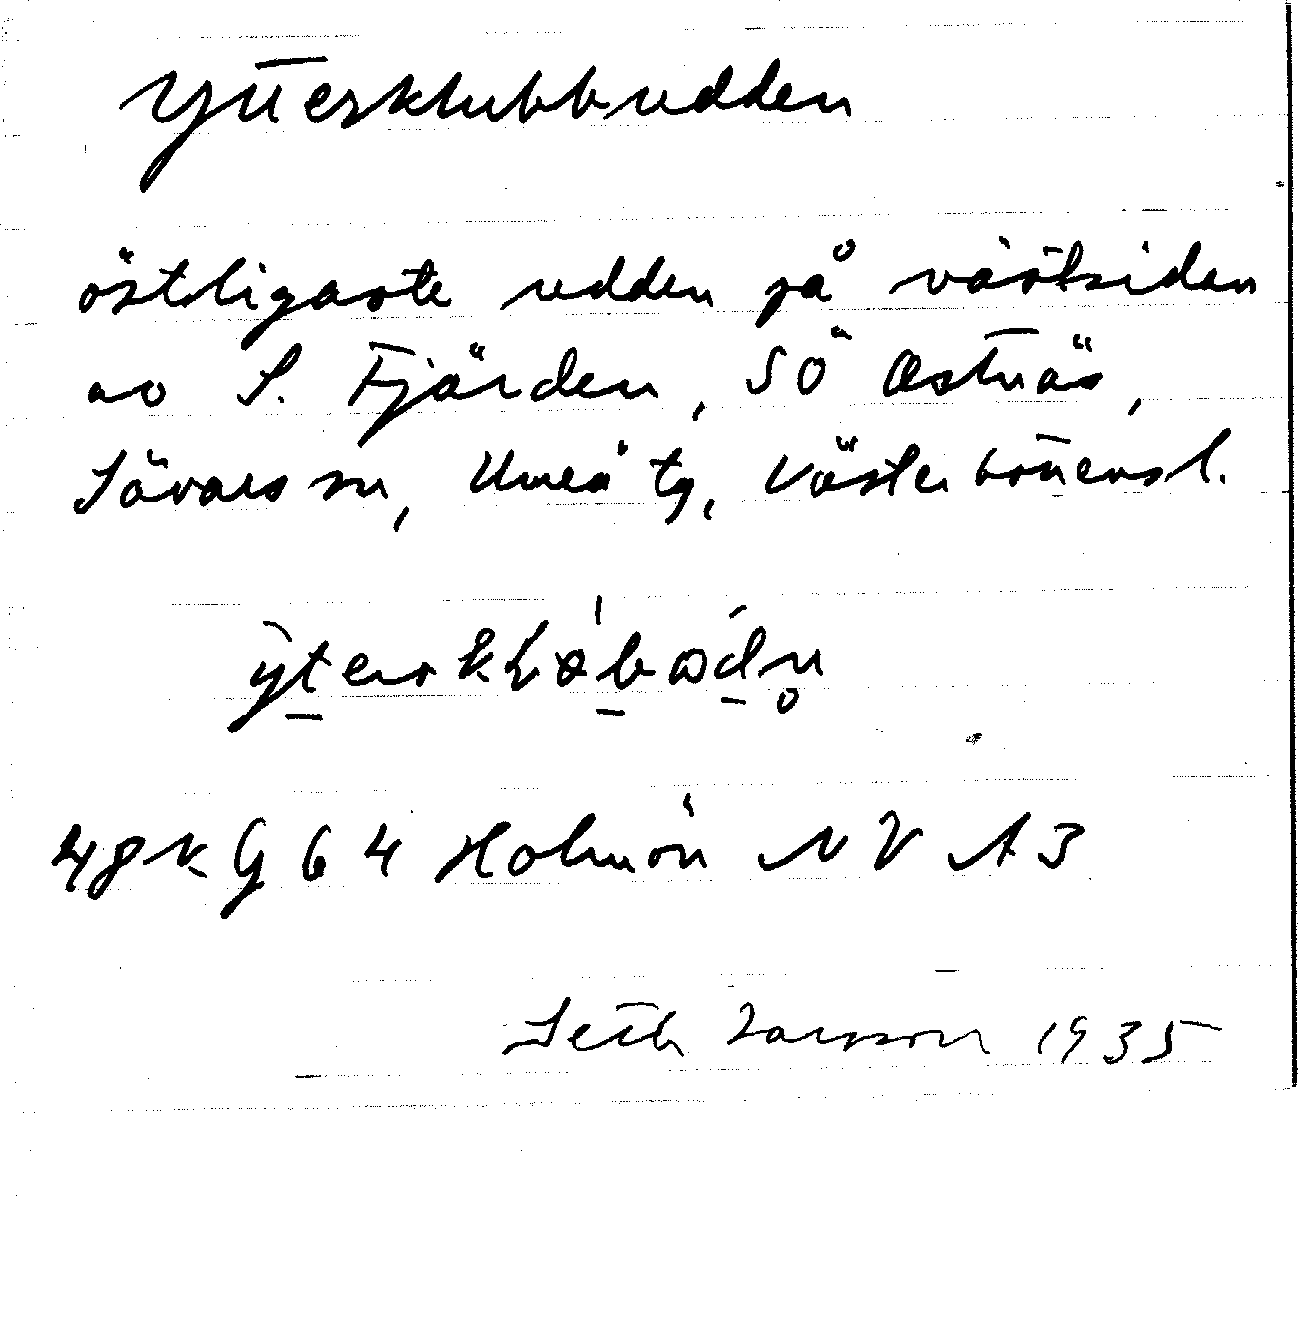 Ytterklubbudden
östligaste udden på västsidan
av S. Fjärden, SÖ Ostnäs,
Sävars sn, Umeå tg, Västerbottens l.
48 k G 64 Holmön NV A3
Seth Larsson 1935